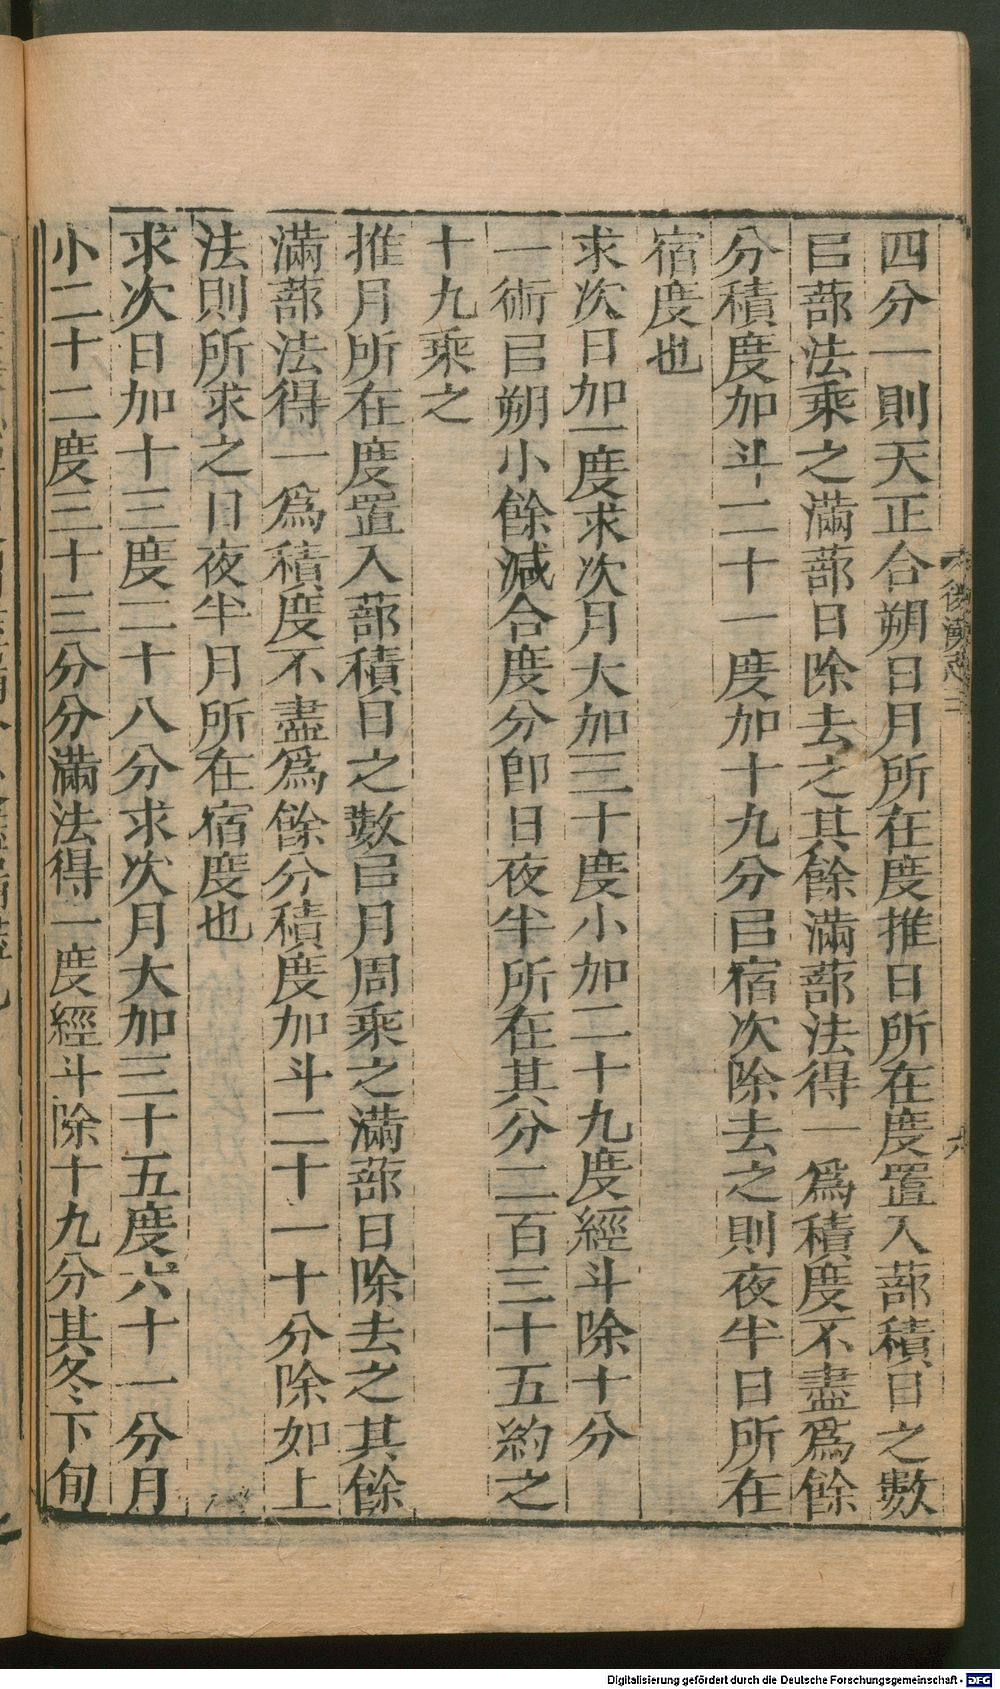 四分一則天正合朔日月所在度推日所在度置入蔀積日之數
㠯蔀法乘之滿蔀日除去之其餘滿蔀法得一爲積度不盡爲餘
分積度加斗二十一度加十九分㠯宿次除去之則夜半日所在
宿度也
求次日加一度求次月大加三十度小加二十九度經斗除十分
一術㠯朔小餘減合度分卽日夜半所在其分二百三十五約之
十九乘之
推月所在度置入蔀積日之數㠯月周乘之滿蔀日除去之其餘
滿蔀法得一爲積度不盡爲餘分積度加斗二十一十分除如上
法則所求之日夜半月所在宿度也
求次日加十三度二十八分求次月大加三十五度六十一分月
小二十二度三十三分分滿法得一度經斗除十九分其冬下旬
後漢志三
六
Digitalisierung gefördert durch die Deutsche Forschungsgemeinschaft - DFG